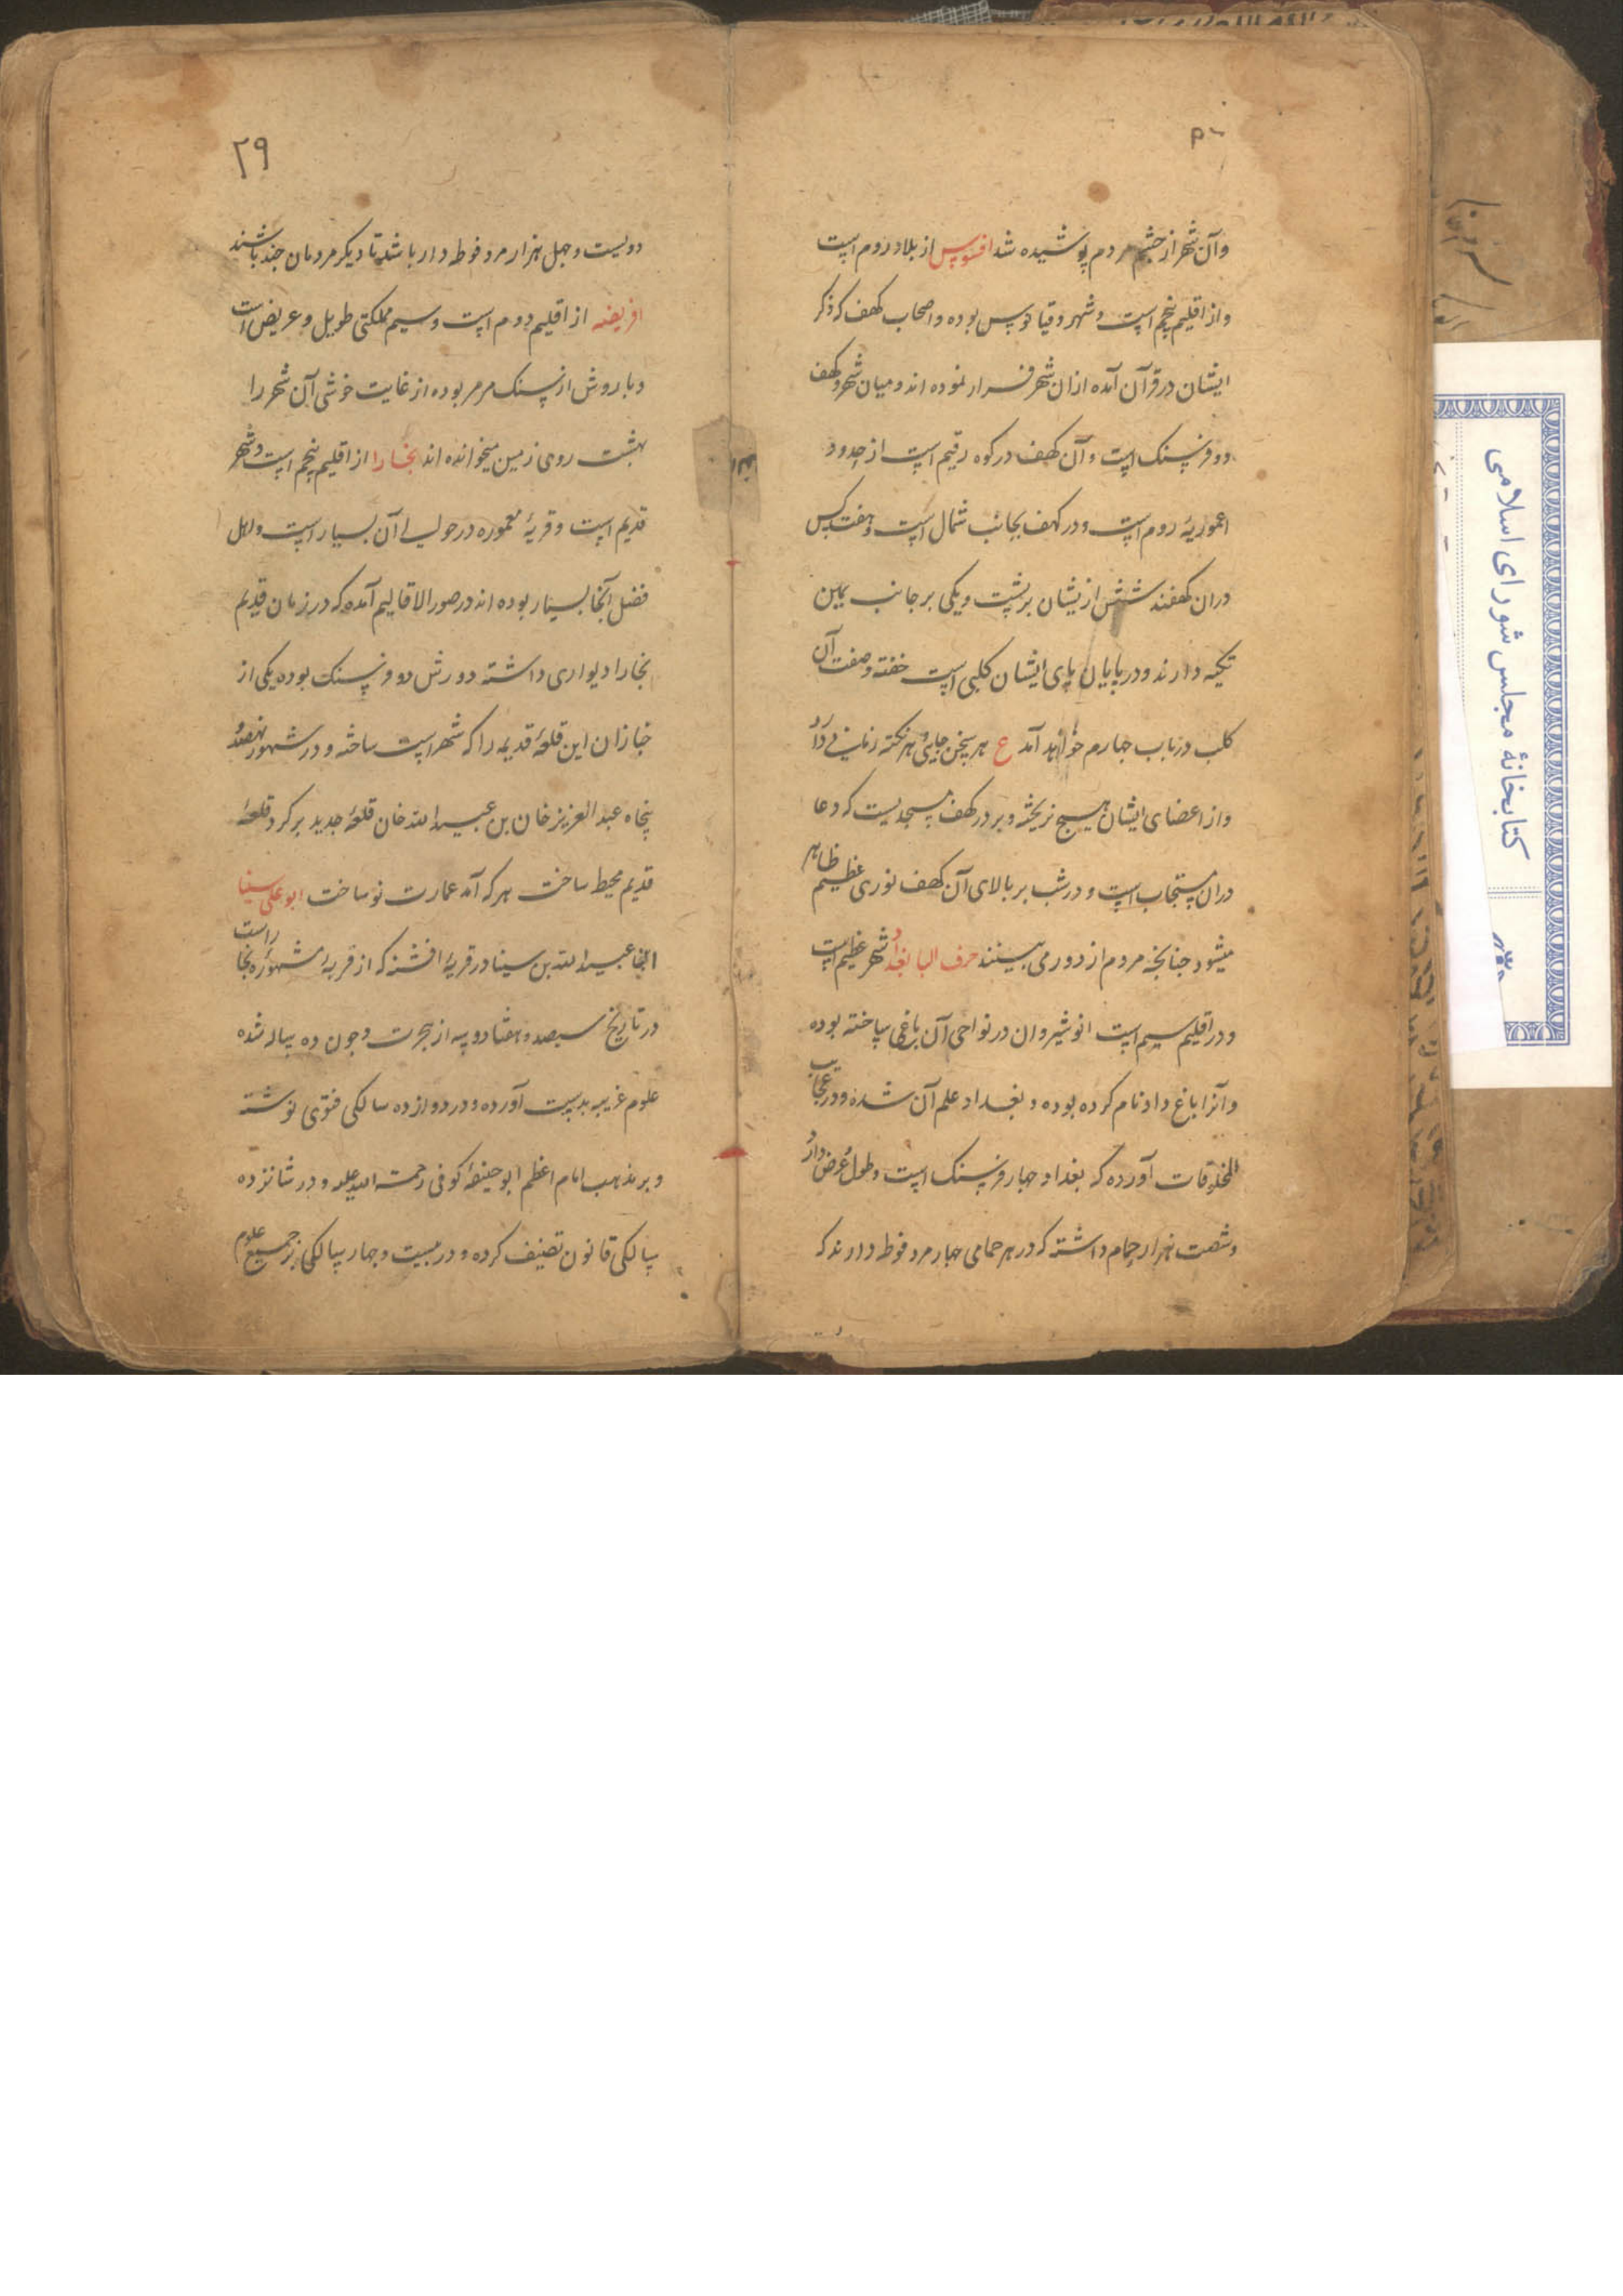 ۵۰
وآن شهر از جشم مردم پوشیده شد افسوس از بلاد روم است
واز اقلیم پنجم است وشهر دقیانوس بوده واصحاب کهف که ذکر
ایشان در قرآن آمده ازان شهر فرار نموده اند ومیان شهر وکهف
دو فرسنک است وآن کهف در کوه رقیم است از حدود
اعموریهٔ روم است ودر کهف بجانب شمال است وهفت کس
دران کهفند شش ازیشان بر پشت ویکی بر جانب یمین
تکیه دارند ودر پایان پای ایشان کلبی است خفته وصفت آن
کلب در باب جهارم خواهد آمد ع هر سخن جایی وهر نکته زمانی دارد
واز اعضای ایشان هیسج نریخته وبر در کهف مسجدیست که دعا
دران مستجاب است ودر شب بر بالای آن کهف نوری عظیم ظاهر
میشود جنانجه مردم از دور می بینند حرف البا بغداد شهر عظیم است
ودر اقلیم سیم است انوشیروان در نواحی آن باغی ساخته بوده
وآنرا باغ داد نام کرده بوده وبغداد علم آن شده ودر عجایب
المخلوقات آورده که بغداد جهار فرسنک است وطول وعرض دارد
وشصت هزار حمام داشته که در هر حمامی جهار مرد فوطه دارند که
۲۹
دویست وجهل هزار مرد فوطه دار باشد تا دیکر مردمان جند باشند
افریقه از اقلیم دوم است وسیم مملکتی طویل وعریض است
وباروش از سنک مرمر بوده از غایت خوشی آن شهر را
بهشت روی زمین میخوانده اند بخارا از اقلیم پنجم است وشهر
قدیم است وقریهٔ معموره در حوالی آن بسیار است واهل
فضل آنجا بسیار بوده اند در صور الاقالیم آمده که در زمان قدیم
بخارا دیواری داشته دورش دو فرسنک بوده یکی از
خازان این قلعهٔ قدیمه را که شهر است ساخته ودر شهور نهصد و
پنجاه عبد العزیز خان بن عبید الله خان قلعهٔ جدید بر کرد قلعهٔ
قدیم محیط ساخت هر که آمد عمارت نو ساخت ابو علی سینا
آنجا عبید الله بن سینا در قریهٔ افشنه که از قریهٔ مشهورهٔ بخاراست
در تاریخ سیصد وهفتاد وسه از هجرت وجون ده ساله شده
علوم غریبه بدست آورده ودر دوازده سالکی فتوی نوشته
وبر مذهب امام اعظم ابو حنیفهٔ کوفی رحمت الله علیه ودر شانزده
سالکی قانون تصنیف کرده ودر بیست وجهار سالکی بر جمیع علوم
کتابخانهٔ مجلس شورای اسلامی